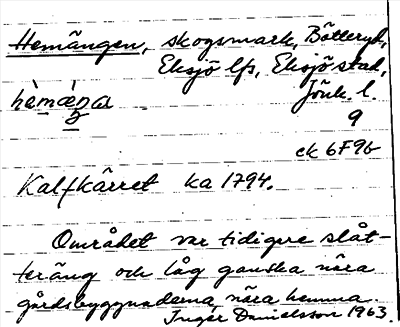 Hemängen, skogsmark, Bötteryd,
Eksjö lfs, Eksjö stad,
Jönk. l.
9
ek 6F9b
Kalfkärret ka 1794.
Området var tidigare slåt-
teräng och låg ganska nära
gårdsbyggnaderna, nära hemma.
Inger Danielsson 1963.